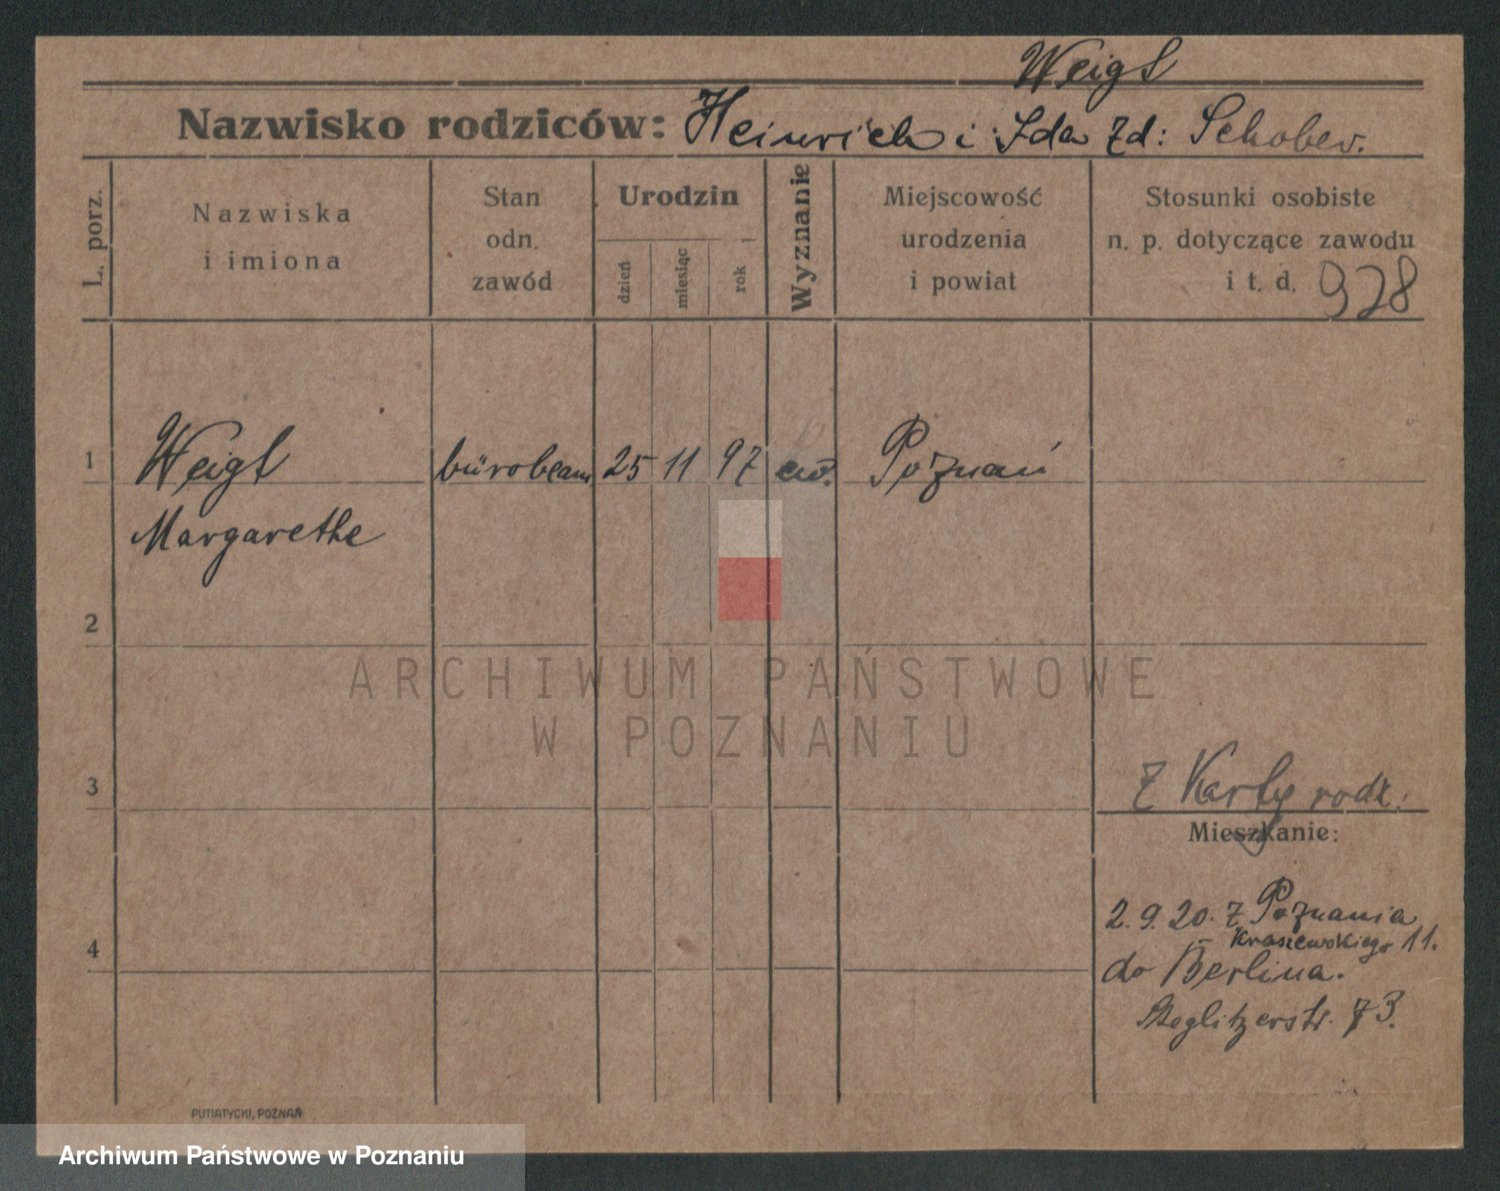 Weigt
Nazwisko rodziców: Heinrich i Ida zd: Schober.
L. porz.
Nazwiska
i imiona
Stan
odn.
zawód
Urodzin
dzień
miesiąc
rok
Wyznanie
Miejscowość
urodzenia
i powiat
Stosunki osobiste
n. p. dotyczące zawodu
i t. d. 928
1 Weigt bürobeam 25 11 97 ew. Poznań
Margarethe
2
ARCHIWUM PAŃSTWOWE
W POZNANIU
3 Z Karty rodz.
Mieszkanie:
2.9.20. z Poznania
Kraszewskiego 11.
4 do Berlina.
Steglitzerstr. 73.
PUTIATYCKI, POZNAŃ
Archiwum Państwowe w Poznaniu